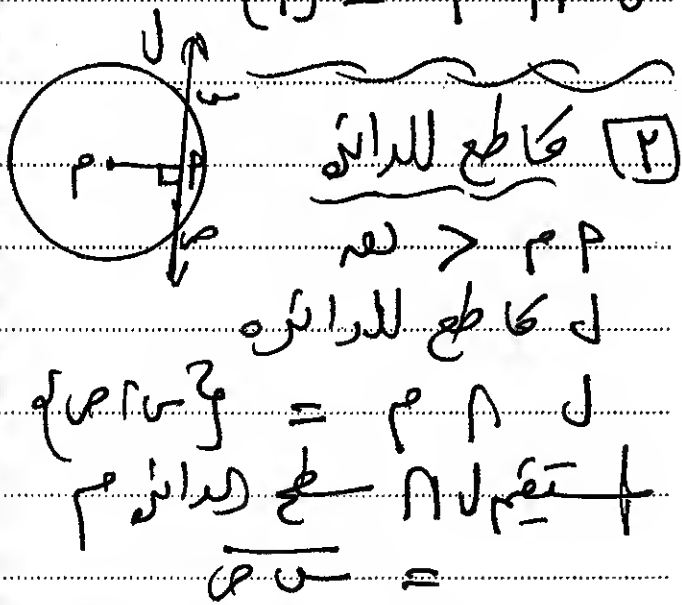 ٢ قاطع للدائرة
م أ < نق
ل قاطع للدائرة
ل ∩ م = {س، ص}
المستقيم ل ∩ سطح الدائرة م
= س ص
ل
س
م أ
ص